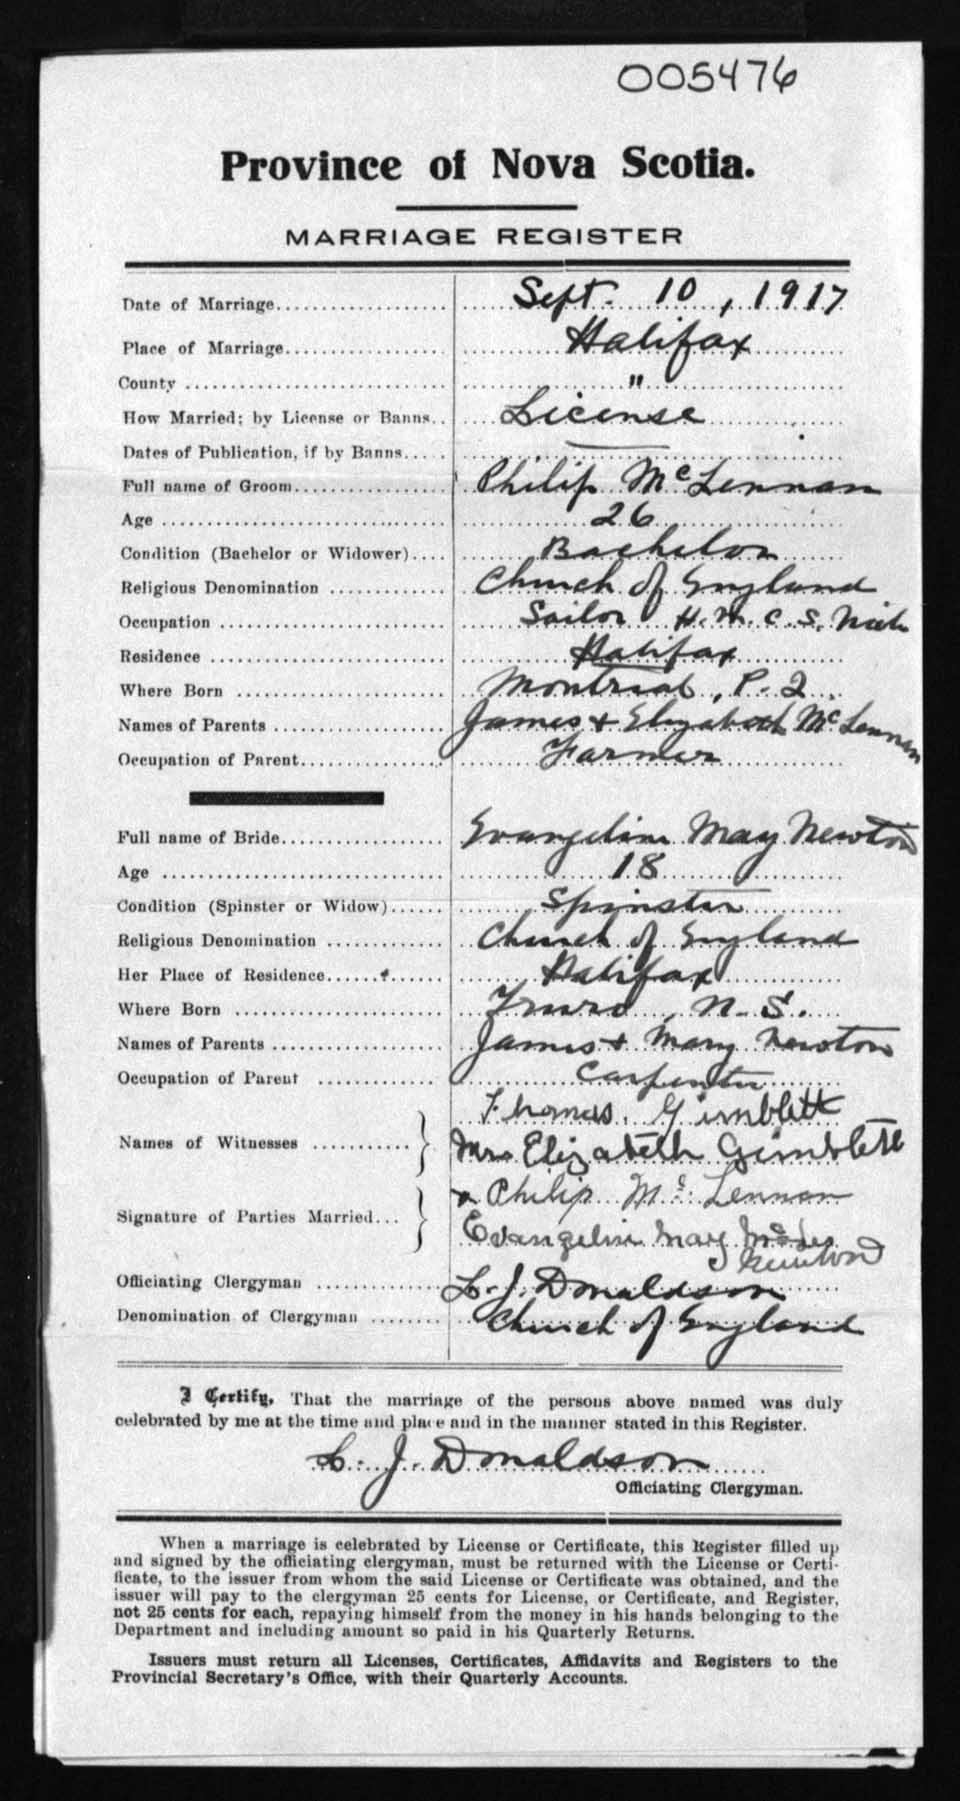 005476
Province of Nova Scotia.
MARRIAGE REGISTER
Date of Marriage Sept. 10, 1917
Place of Marriage Halifax
County "
How Married; by License or Banns License
Dates of Publication, if by Banns —
Full name of Groom Philip McLennan
Age 26
Condition (Bachelor or Widower) Bachelor
Religious Denomination Church of England
Occupation Sailor H.M.C.S. Niobe
Residence Halifax
Where Born Montreal, P.Q.
Names of Parents James & Elizabeth McLennan
Occupation of Parent Farmer
Full name of Bride Evangeline May Newton
Age 18
Condition (Spinster or Widow) Spinster
Religious Denomination Church of England
Her Place of Residence Halifax
Where Born Truro, N.S.
Names of Parents James & Mary Newton
Occupation of Parent Carpenter
Thomas Gimblett
Names of Witnesses
Mrs Elizabeth Gimblett
x Philip McLennan
Signature of Parties Married
Evangeline May
Newton
Officiating Clergyman L. J. Donaldson
Denomination of Clergyman Church of England
I Certify, That the marriage of the persons above named was duly
celebrated by me at the time and place and in the manner stated in this Register.
L. J. Donaldson
Officiating Clergyman.
When a marriage is celebrated by License or Certificate, this Register filled up
and signed by the officiating clergyman, must be returned with the License or Certi-
ficate, to the issuer from whom the said License or Certificate was obtained, and the
issuer will pay to the clergyman 25 cents for License, or Certificate, and Register,
not 25 cents for each, repaying himself from the money in his hands belonging to the
Department and including amount so paid in his Quarterly Returns.
Issuers must return all Licenses, Certificates, Affidavits and Registers to the
Provincial Secretary's Office, with their Quarterly Accounts.